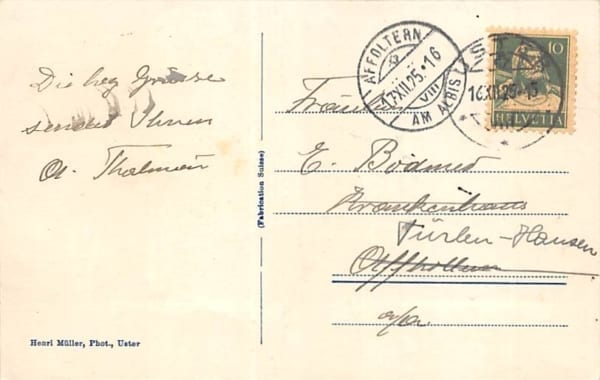 Die herz Grüsse
senden Ihnen
A. Thalmann
(Fabrication Suisse)
Henri Müller, Phot., Uster
AFFOLTERN
17.XII.25-16
VIII
AM ALBIS
16.XII.25
10
HELVETIA
Fräulein
E. Bodmer
Krankenhaus
Türlen-Hausen
Affholtern
a/A.